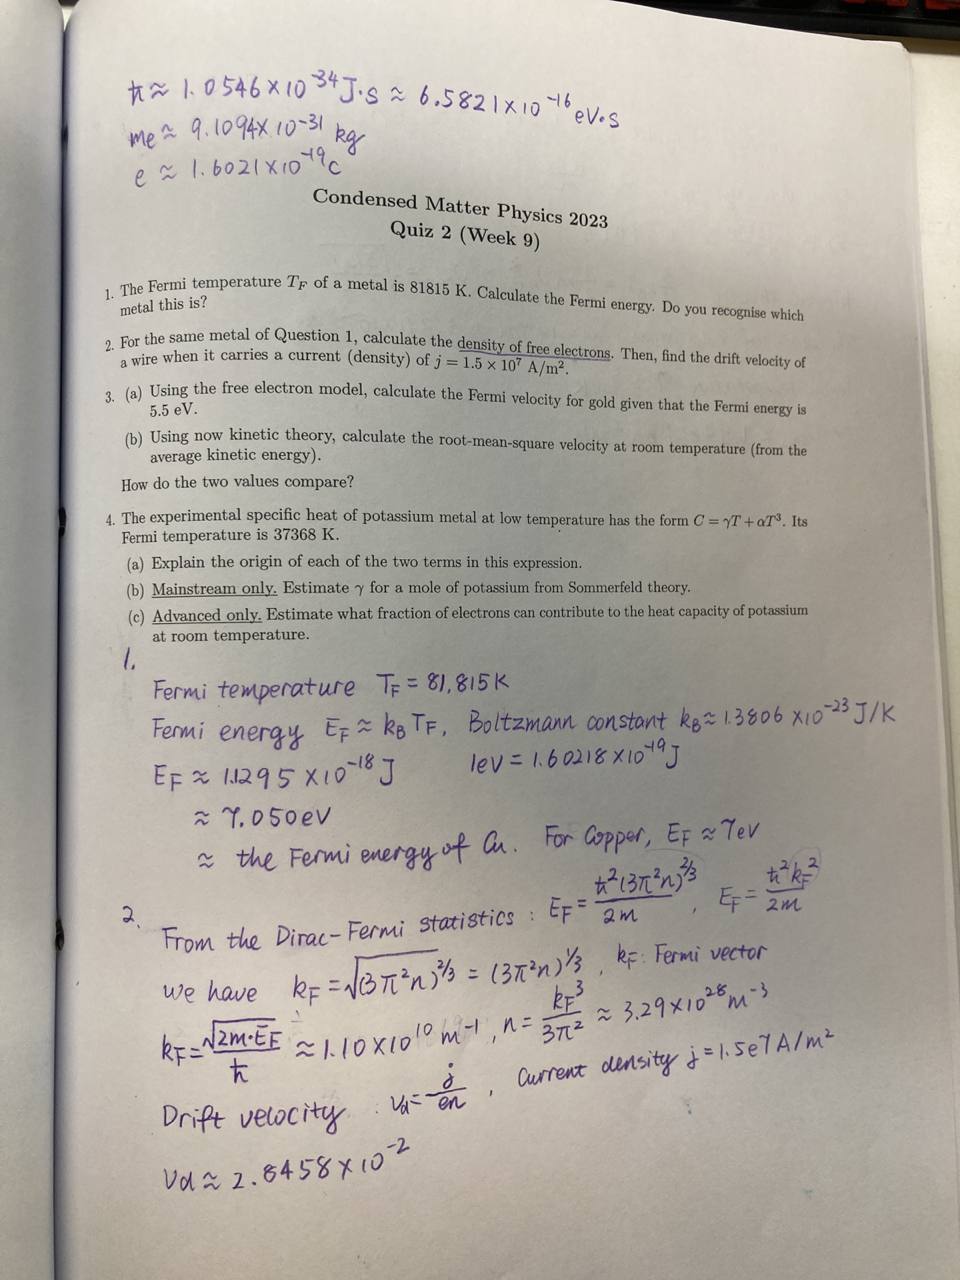 ħ ≈ 1.0546×10⁻³⁴ J·s ≈ 6.5821×10⁻¹⁶ eV·s
me ≈ 9.1094×10⁻³¹ kg
e ≈ 1.6021×10⁻¹⁹ C
Condensed Matter Physics 2023
Quiz 2 (Week 9)
1. The Fermi temperature T_F of a metal is 81815 K. Calculate the Fermi energy. Do you recognise which
metal this is?
2. For the same metal of Question 1, calculate the density of free electrons. Then, find the drift velocity of
a wire when it carries a current (density) of j = 1.5 × 10⁷ A/m².
3. (a) Using the free electron model, calculate the Fermi velocity for gold given that the Fermi energy is
5.5 eV.
(b) Using now kinetic theory, calculate the root-mean-square velocity at room temperature (from the
average kinetic energy).
How do the two values compare?
4. The experimental specific heat of potassium metal at low temperature has the form C = γT + αT³. Its
Fermi temperature is 37368 K.
(a) Explain the origin of each of the two terms in this expression.
(b) Mainstream only. Estimate γ for a mole of potassium from Sommerfeld theory.
(c) Advanced only. Estimate what fraction of electrons can contribute to the heat capacity of potassium
at room temperature.
1.
Fermi temperature T_F = 81,815K
Fermi energy E_F ≈ k_B T_F, Boltzmann constant k_B ≈ 1.3806 ×10⁻²³ J/K
E_F ≈ 1.1295 ×10⁻¹⁸ J 1eV = 1.60218×10⁻¹⁹ J
≈ 7.050eV
≈ the Fermi energy of Cu. For Copper, E_F ≈ 7eV
2.
From the Dirac-Fermi statistics : E_F = ħ²(3π²n)^(2/3) / 2m , E_F = ħ²k_F² / 2m
we have k_F = √(3π²n)^(2/3) = (3π²n)^(1/3) , k_F: Fermi vector
k_F = √(2m·E_F) / ħ ≈ 1.10×10¹⁰ m⁻¹ , n = k_F³ / 3π² ≈ 3.29×10²⁸ m⁻³
Drift velocity : Vd = j / en , Current density j = 1.5e7 A/m²
Vd ≈ 2.8458×10⁻²